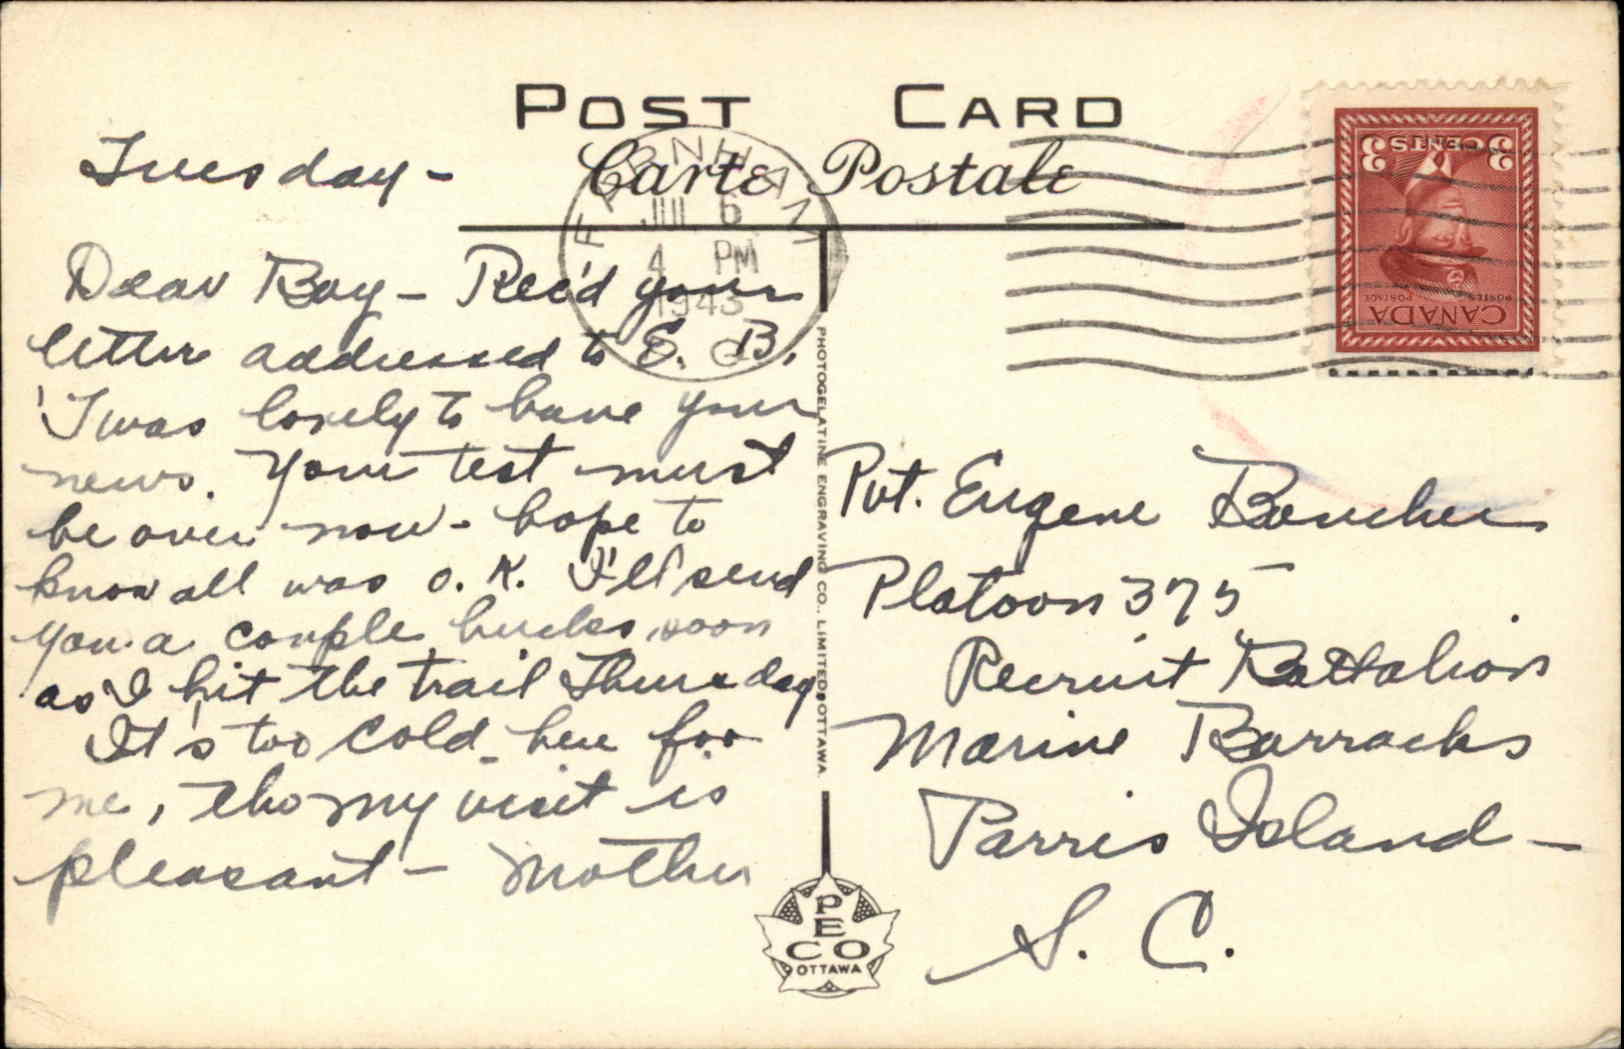 POST CARD
Carte Postale
FARNHAM
JUL 6
4 PM
1943
P. Q.
3 CENTS 3
POSTES POSTAGE
CANADA
Tuesday -
Dear Boy - Rec'd your
letter addressed to E. B.
'Twas lovely to have your
news. Your test must
be over now - hope to
know all was o. K. I'll send
you a couple bucks, soon
as I hit the trail Thursday
It's too cold here for
me, tho my visit is
pleasant - Mother
PHOTOGELATINE ENGRAVING CO., LIMITED, OTTAWA.
Pvt. Eugene Boucher
Platoon 375
Recruit Battalion
Marine Barracks
Parris Island -
S. C.
PECO
OTTAWA